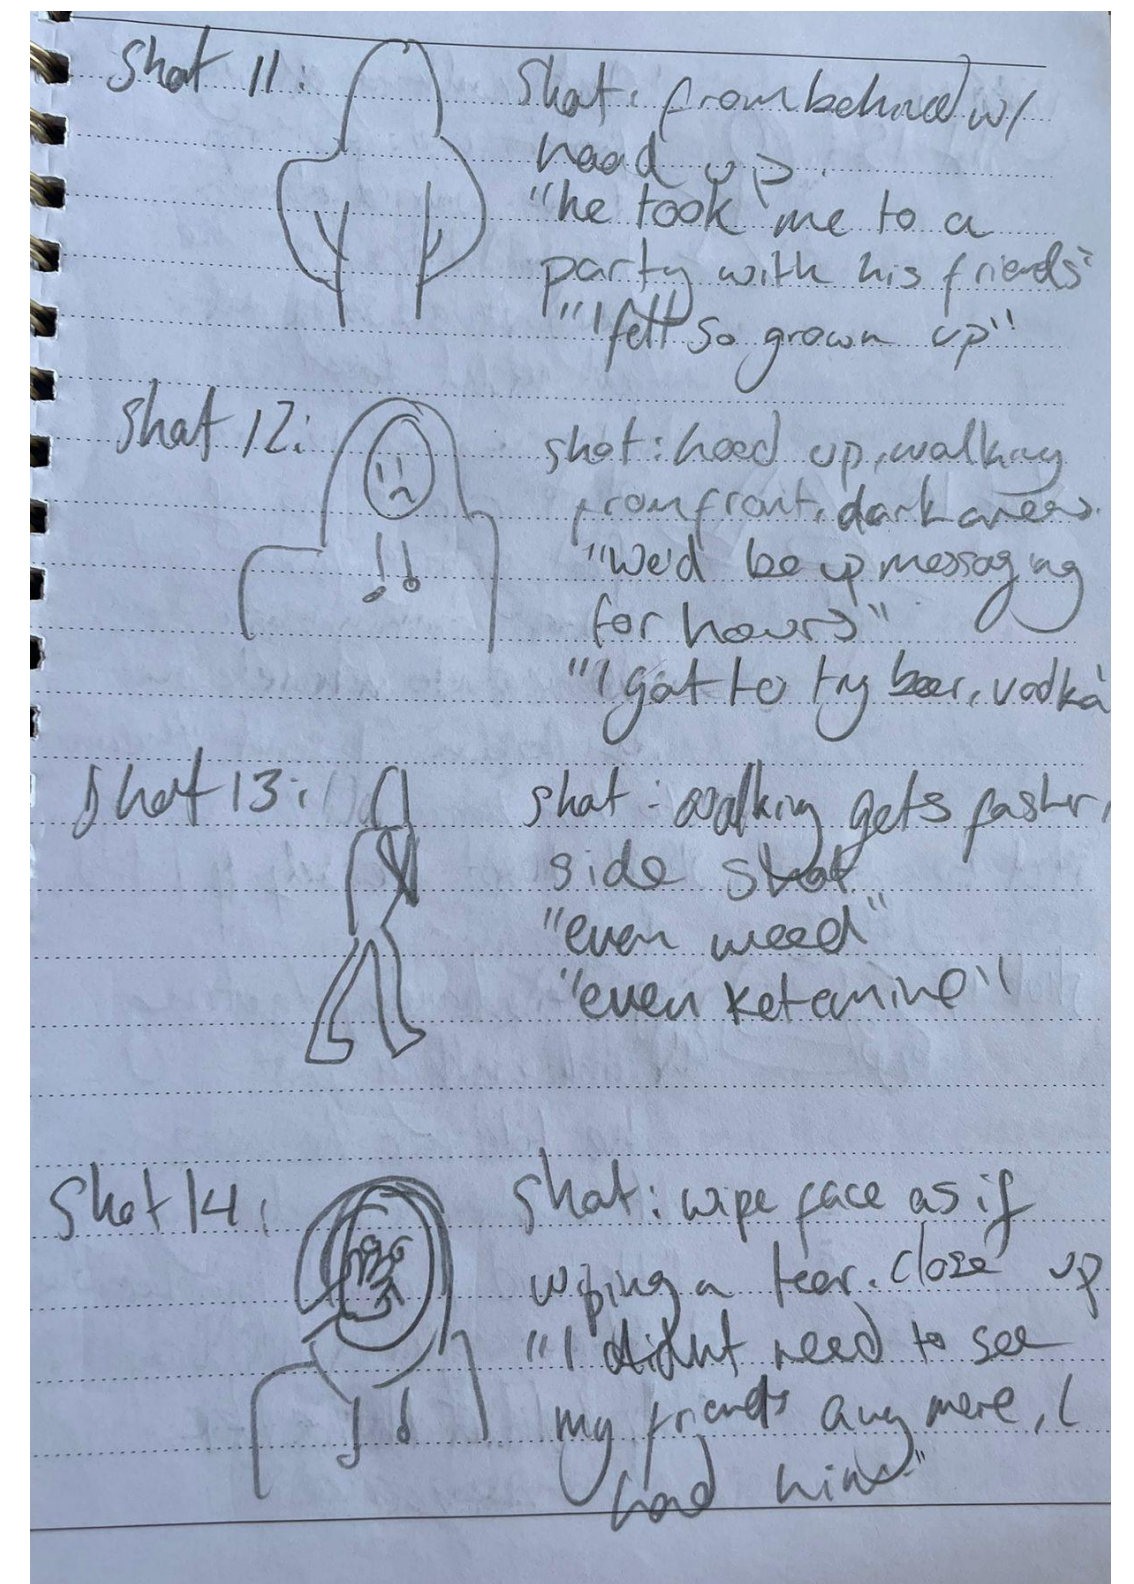 Shot 11:
Shot: from behind w/
hood up.
"he took me to a
party with his friends"
"I felt so grown up"
Shot 12:
shot: hood up, walking
from front, dark areas.
"We'd be up messaging
for hours"
"I got to try beer, vodka
Shot 13:
shot: walking gets faster,
side shot
"even weed"
"even ketamine"
Shot 14:
Shot: wipe face as if
wiping a tear. close up
"I didnt need to see
my friends any more, I
had him"